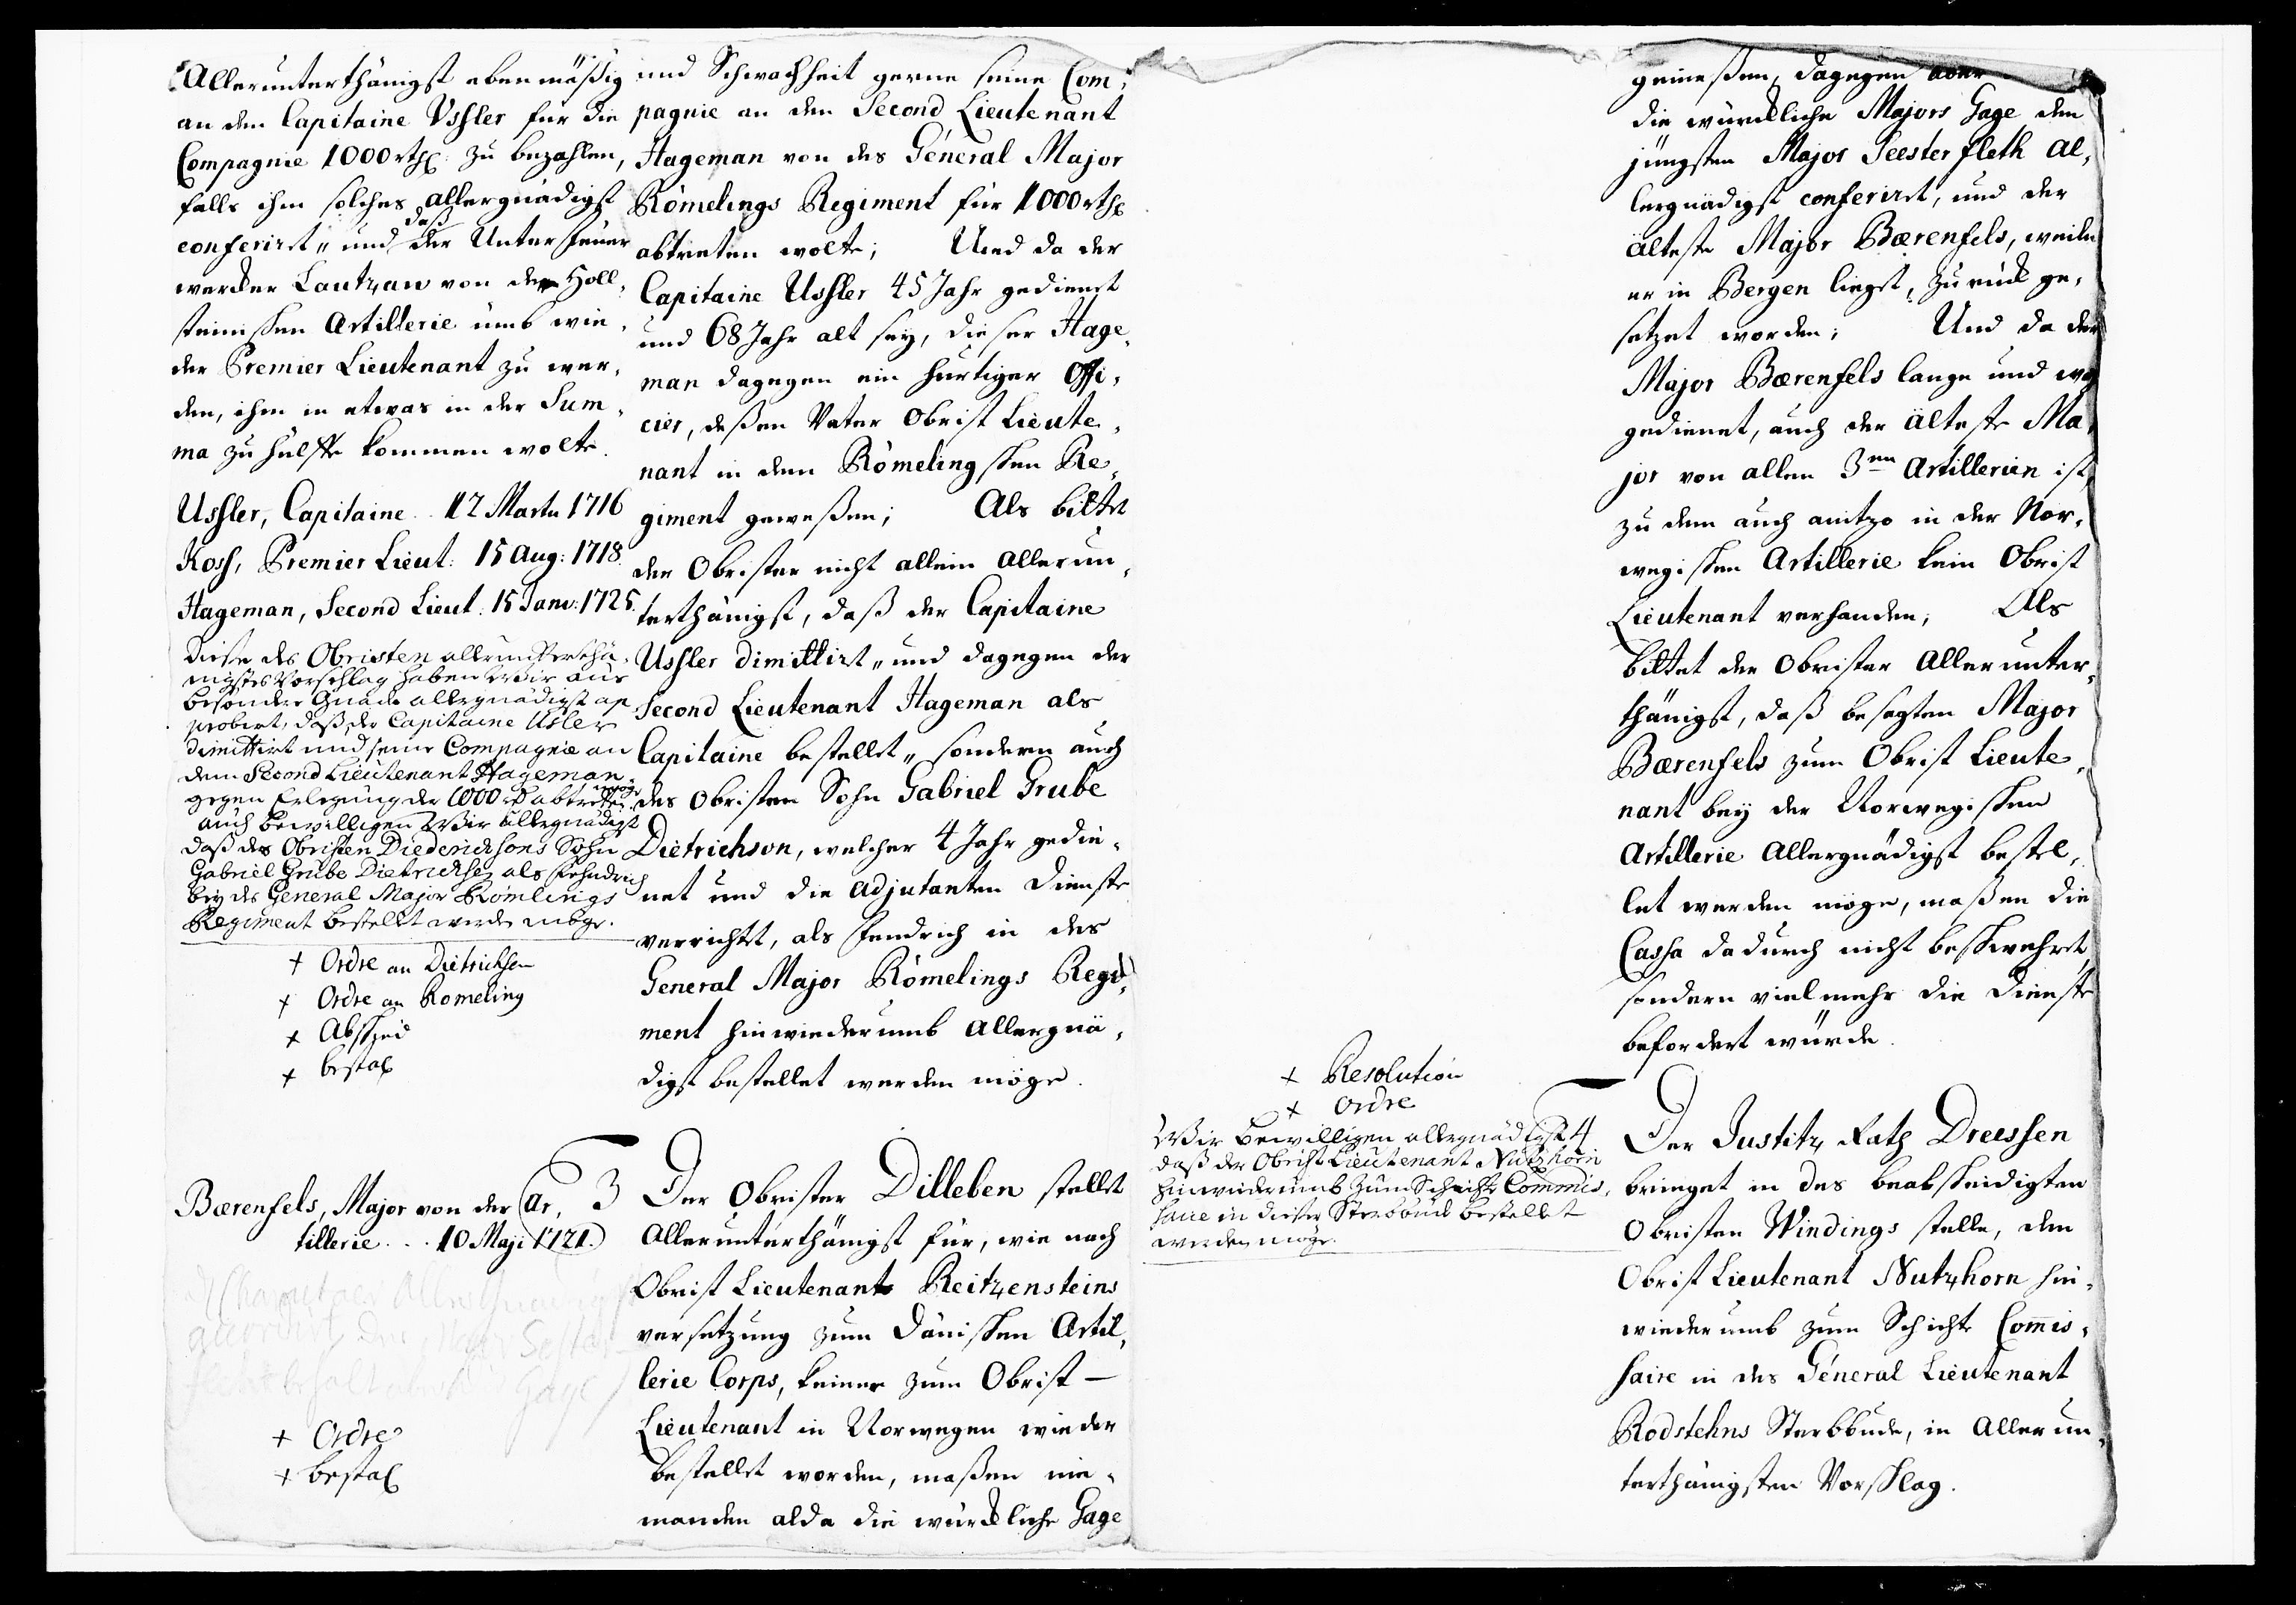 Allerunterthänigst ebenmäßig
an den Capitaine Ussler für die
Compagnie 1000 rthl: zu bezahlen,
falls ihm solches allergnädigst
conferiret, und daß der Unter
wercker Lautzau von der Holl,
steinischen Artillerie umb wie,
der Premier Lieutenant zu wer,
den, ihm in etwas in der Sum,
ma zu hülffe kommen wolte.
Ussler, Capitaine .. 12 Martii 1716
Koss, Premier Lieut: 15 Aug: 1718.
Hageman, Second Lieut: 15 Janv: 1725.
Diesen des Obristen allerunterthä,
nigstes Vorschlag haben Wir aus
besonder Gnade allergnädigst ap
probirt, daß der Capitaine Usler
dimittirt und seine Compagnie an
dem Second Lieutenant Hageman
gegen Erlegung der 1000 rd abtreten möge,
auch bewilligen Wir allergnädigst
daß des Obristen Diedericksons Sohn
Gabriel Grube Dietricksen als Fehndrich
bey des General Major Römlings
Regiment bestellt werde möge.
+ Ordre an Dietrichsen
+ Ordre an Romeling
+ Abscheid
+ bestal
und Schwachheit gerne seine Com,
pagnie an den Second Lieutenant
Hageman von des Géneral Major
Römelings Regiment für 1000 rthl
abtreten wolte; Und da der
Capitaine Ussler 45 Jahr gedienet
und 68 Jahr alt sey, dieser Hage,
man dagegen ein hurtiger Offi,
cier, deßen Vater Obrist Lieute,
nant in dem Römelingschen Re,
giment geweßen; Als bittet
der Obrister nicht allein Allerun,
terthänigst, daß der Capitaine
Ussler dimittirt, und dagegen der
Second Lieutenant Hageman als
Capitaine bestellet, sondern auch
des Obristen Sohn Gabriel Grube
Dietrichson, welcher 4 Jahr gedie,
net und die Adjutanten Dienste
verrichtet, als Fendrich in des
General Major Römelings Regi,
ment hinwiederumb Allergnä,
digst bestellet werden möge.
Bærenfels, Major von der Ar,
tillerie ... 10 Maji 1721.
+ Ordre
+ bestal
3 Der Obrister Dilleben stellet
Allerunterthänigst für, wie nach
Obrist Lieutenants Reitzensteins
versetzung zum Dänischen Artil,
lerie Corps, keiner zum Obrist-
Lieutenant in Norwegen wieder
bestellet worden, maßen nie,
manden alda die würckliche Gage
genießen, dagegen aber
die würckliche Majors Gage dem
jüngsten Major Seesterfleth Al,
lergnädigst conferiret, und der
älteste Major Bærenfels, weilen
er in Bergen lieget, zurück ge,
setzet worden; Und da der
Major Bærenfels lange und
gedienet, auch der älteste Ma,
jor von allen 3en Artillerien ist,
zu dem auch anitzo in der Nor,
wegischen Artillerie kein Obrist
Lieutenant verhanden; Als
bittet der Obrister Allerunter,
thänigst, daß besagten Major
Bærenfels zum Obrist Lieute,
nant bey der Norwegischen
Artillerie Allergnädigst bestel,
let werden möge, maßen die
Cassa dadurch nicht beschwehret,
sondern vielmehr die Dienste
befordert würde.
+ Resolution
+ Ordre
Wir bewilligen allergnädigst
daß der Obrist Lieutenant Nutzhorn
hinwiederumb zum Schichts Commis,
saire in dieser Sterbbude bestellet
werden möge.
4 Der Justitz Rath Dreessen
bringet in des beabscheidigten
Obristen Windings stelle, den
Obrist Lieutenant Nutzhorn hin,
wiederumb zum Schichts Commis,
saire in des Géneral Lieutenant
Rodstehns Sterbbude, in Allerun,
terthänigsten Vorschlag.